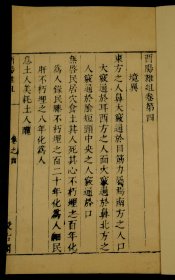 酉陽雜俎卷第四
境異
東方之人鼻大竅通於目筋力屬焉南方之人口
大竅通於耳西方之人面大竅通於鼻北方之
人竅通於陰短頸中央之人竅通於口
無啓民居穴食土其人死其心不朽埋之百年化
爲人錄民膝不朽埋之百二十年化爲人細民
肝不朽埋之八年化爲人
息土人美耗土人醜
酉陽雜俎 卷之四 汲古閣